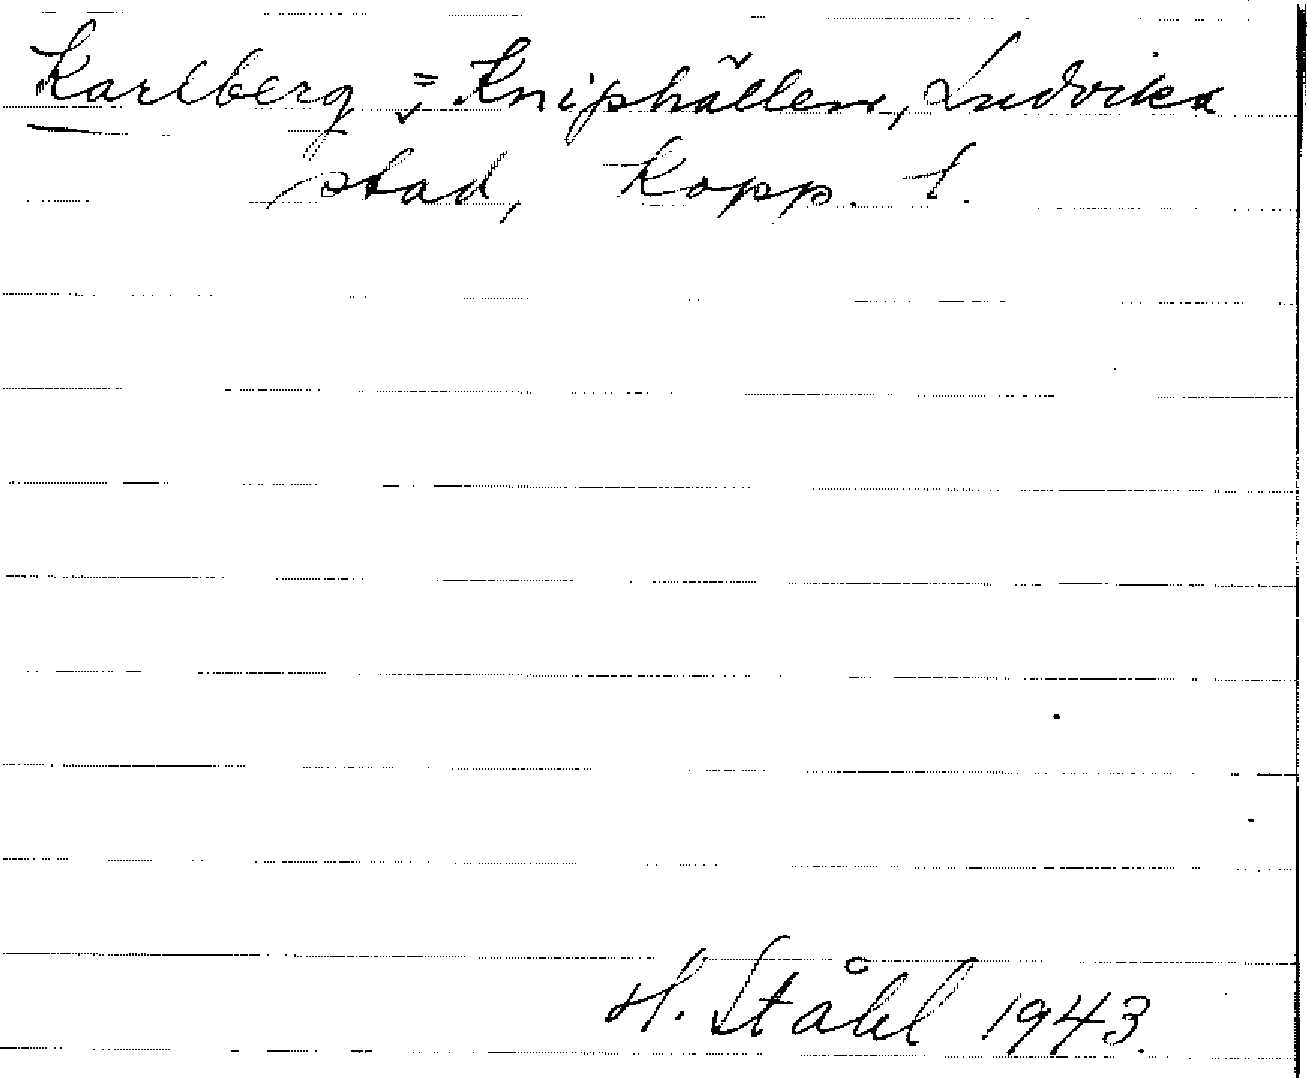 Karlberg = Kniphällen, Ludvika
stad, Kopp. l.
H. Ståhl 1943.